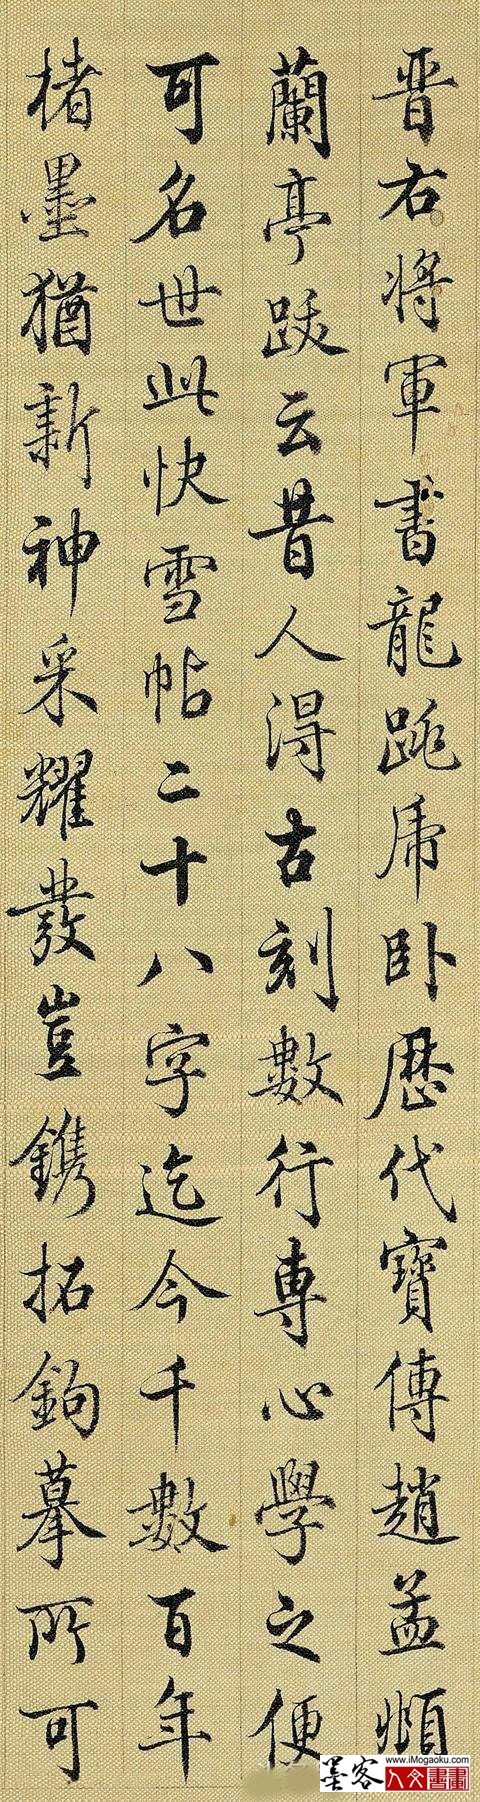 晉右將軍書龍跳虎卧歷代寶傳趙孟頫
蘭亭跋云昔人得古刻數行專心學之便
可名世此快雪帖二十八字迄今千數百年
楮墨猶新神采耀發豈鐫拓鉤摹所可
www.iMogaoku.com
墨客人文書畫